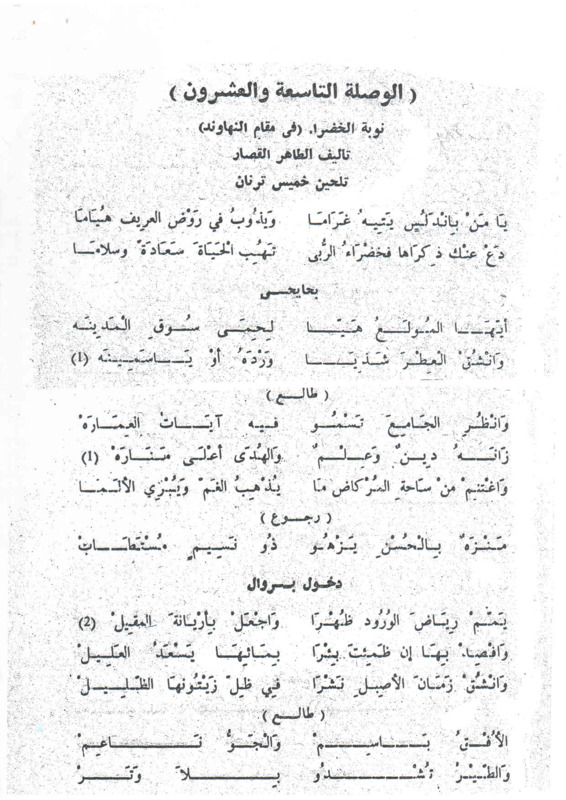 ( الوصلة التاسعة والعشرون )
نوبة الخضراء (في مقام النهاوند)
تاليف الطاهر القصار
تلحين خميس ترنان
يَا مَنْ بِانْدَلُسٍ يَتِيهُ غَرَامَا وَيَذُوبُ في رَوْضِ العَرِيف هُيَامَا
دَعْ عَنْك ذِكرَاهَا فخَضْرَاءُ الرُّبى تَهَبُ الحَيَاةَ سَعَادَةً وسَلامَا
بحايحي
أيّهَا المُولَعُ هَيَّا لِحِمَى سُوقِ المَدِينَه
وَانْشُقْ العِطْرَ شَذِيَّا وَرْدَهُ أوْ يَاسَمِينَه (1)
( طالع )
وَانْظُرِ الجَامِعَ تَسْمُو فيه آيَاتُ العِمَارَهْ
زَانَهُ دِينٌ وَعِلمٌ والهُدَى أعْلَى مَنَارَهْ (1)
وَاغْتَنِمْ مِنْ سَاحَةِ المرْكَاضِ مَا يُذْهِبُ الغَمّ وَيُبْرِي الألَمَا
( رجوع )
مَنْزَهٌ بِالحُسْنِ يَزْهُو ذُو نَسِيمٍ مُسْتَطَابْ
دخول بروال
يَمّمْ رِيَاضَ الوُرُود ظُهْرًا وَاجْعَلْ بِأرْيَانَةَ المَقِيلْ (2)
وَاقْصِدْ بِهَا إن ظَمِئتَ بِئرًا بِمَائِهَا يَسْعَدُ العَلِيلْ
وَانْشُقْ زَمَانَ الأصِيلِ نَشْرًا فِي ظِلّ زَيْتُونِهَا الظَّلِيلْ
( طالع )
الأفْقُ بَاسِمْ وَالجَوُّ نَاعِمْ
وَالطَّيْرُ تَشْدُو بِلاَ وَتَرْ